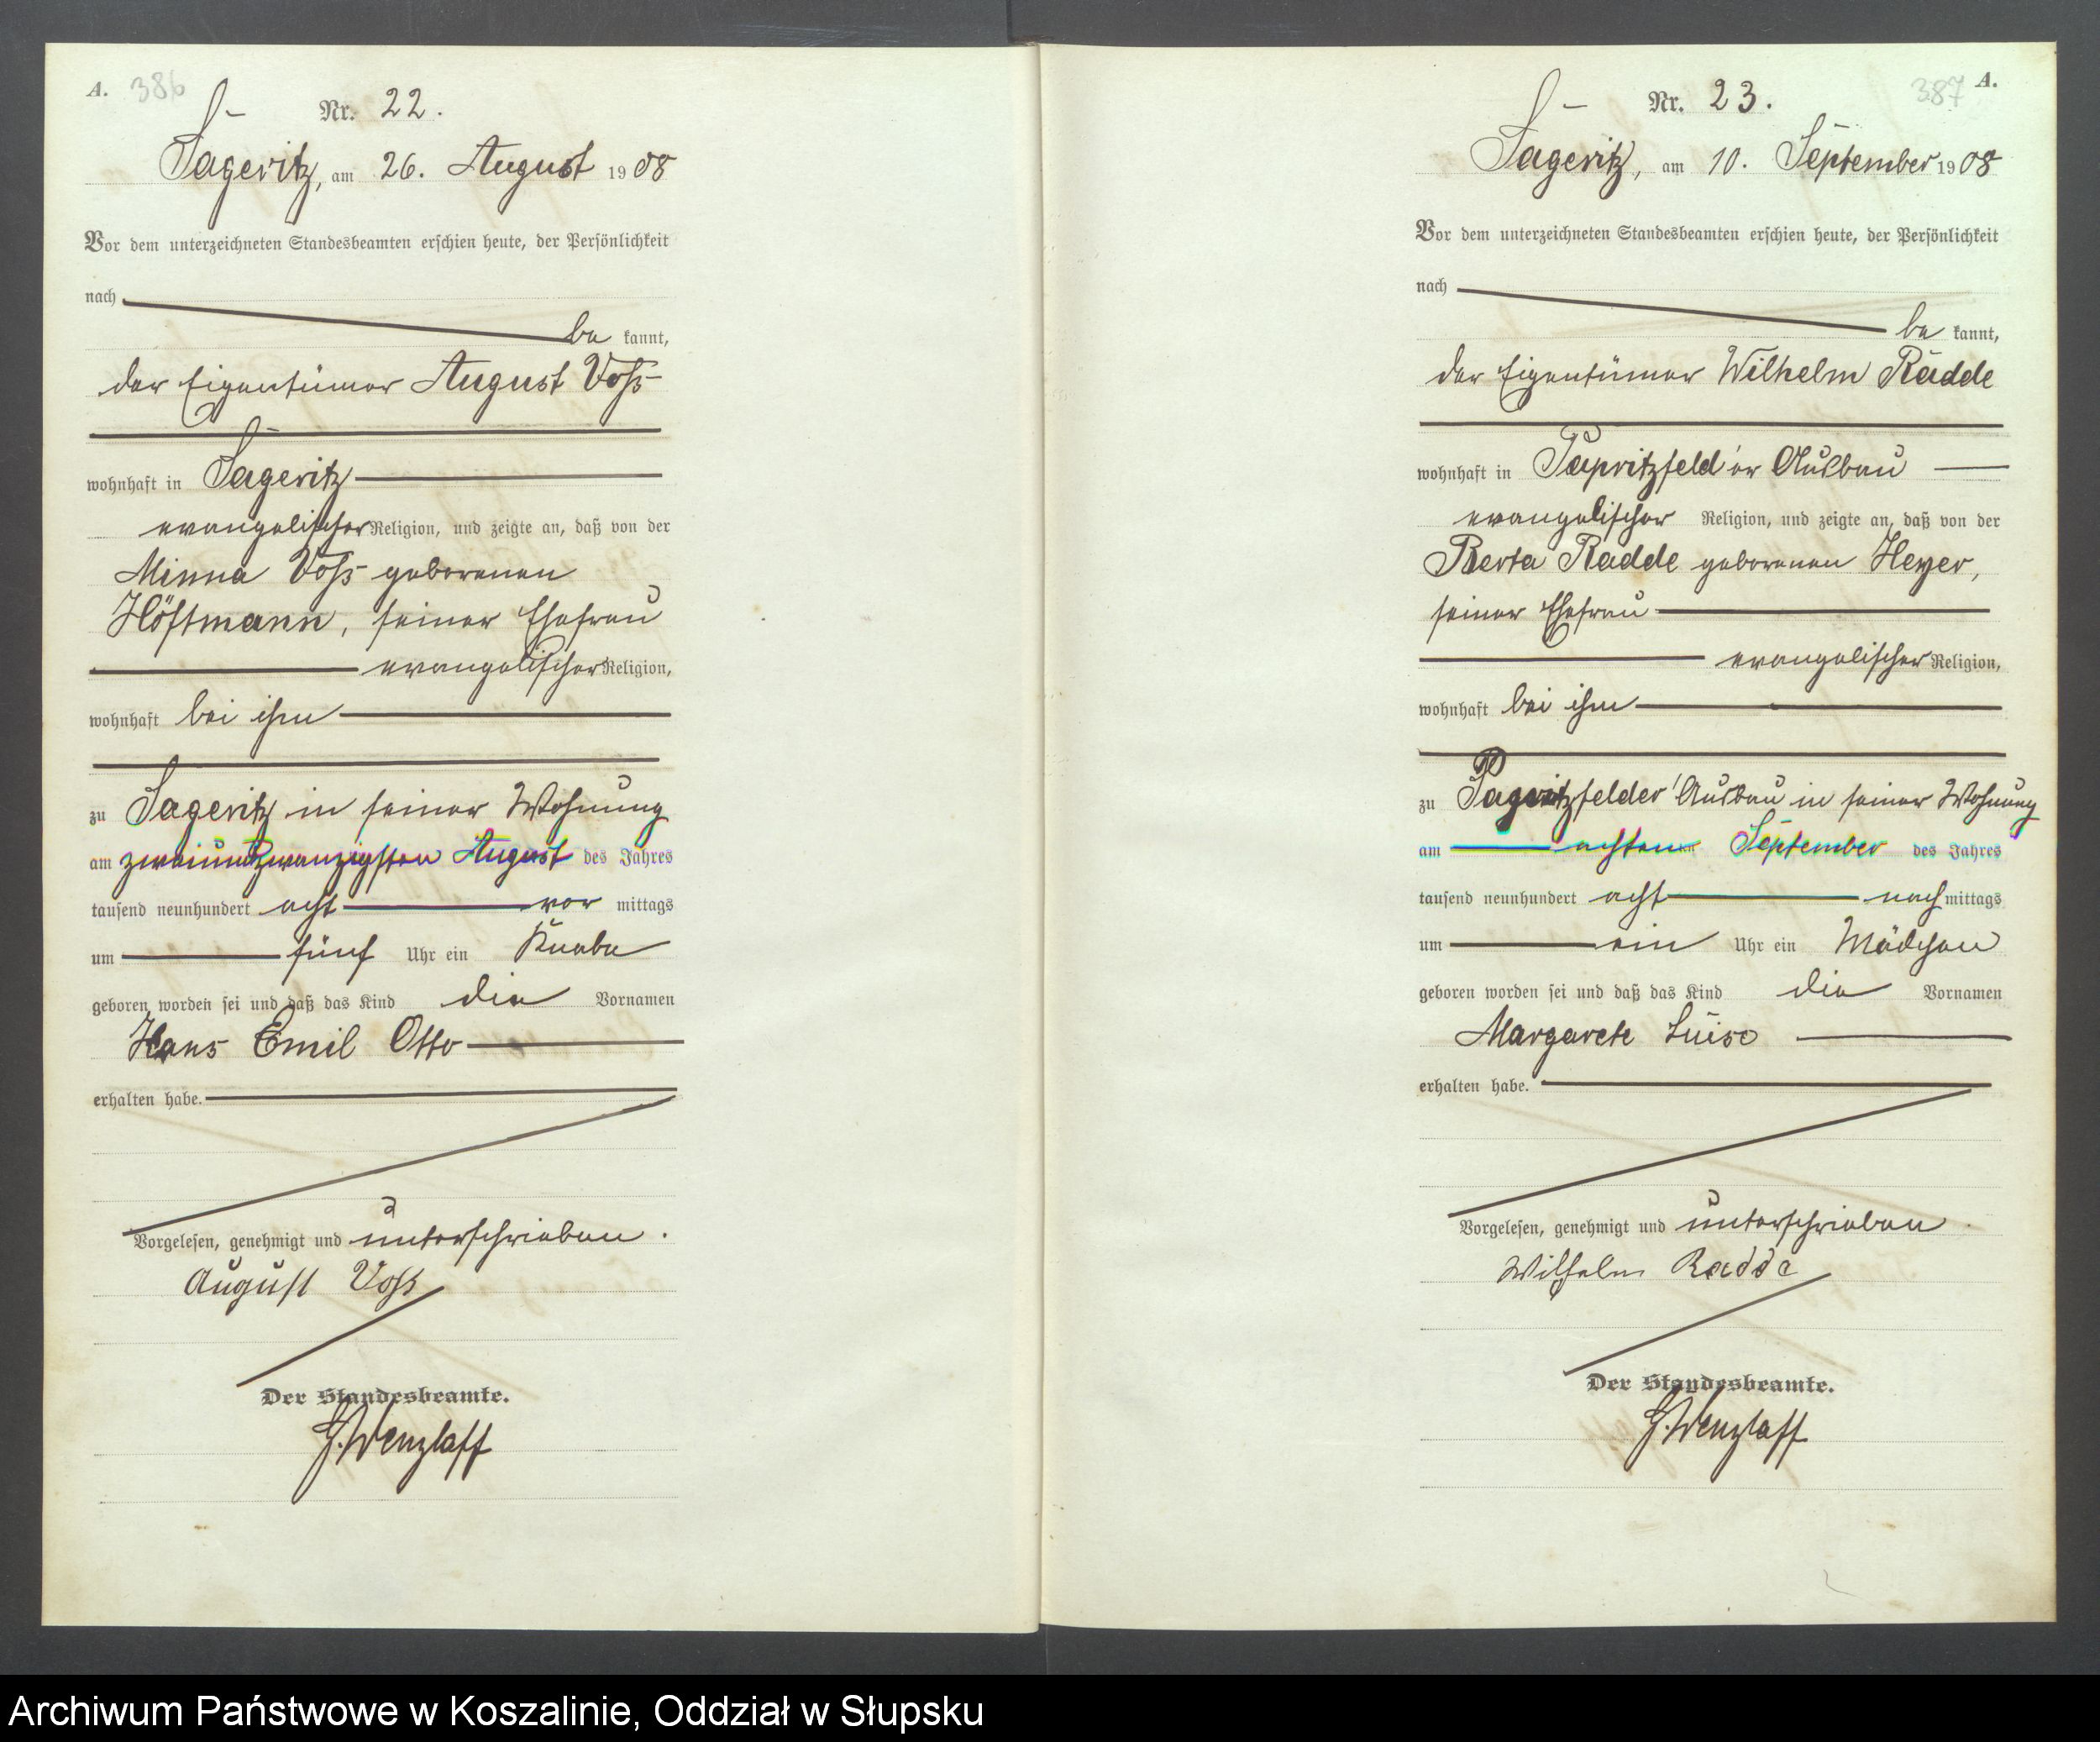 A. 386
Nr. 22.
Sageritz, am 26. August 1908
Vor dem unterzeichneten Standesbeamten erschien heute, der Persönlichkeit
nach
be kannt,
der Eigentümer August Voß
wohnhaft in Sageritz
evangelischer Religion, und zeigte an, daß von der
Minna Voß geborenen
Höftmann, seiner Ehefrau
evangelischer Religion,
wohnhaft bei ihm
zu Sageritz in seiner Wohnung
am zweiundzwanzigsten August des Jahres
tausend neunhundert acht vor mittags
um fünf Uhr ein Knabe
geboren worden sei und daß das Kind die Vornamen
Hans Emil Otto
erhalten habe.
Vorgelesen, genehmigt und unterschrieben.
August Voß
Der Standesbeamte.
G. Wenzlaff
387 A.
Nr. 23.
Sageritz, am 10. September 1908
Vor dem unterzeichneten Standesbeamten erschien heute, der Persönlichkeit
nach
be kannt,
der Eigentümer Wilhelm Radde
wohnhaft in Papritzfeld'er Ausbau
evangelischer Religion, und zeigte an, daß von der
Berta Radde geborenen Heyer,
seiner Ehefrau
evangelischer Religion,
wohnhaft bei ihm
zu Ausbau in seiner Wohnung
am achten September des Jahres
tausend neunhundert acht nach mittags
um ein Uhr ein Mädchen
geboren worden sei und daß das Kind die Vornamen
Margarete Luise
erhalten habe.
Vorgelesen, genehmigt und unterschrieben.
Wilhelm Radde
Der Standesbeamte.
G. Wenzlaff
Archiwum Państwowe w Koszalinie, Oddział w Słupsku